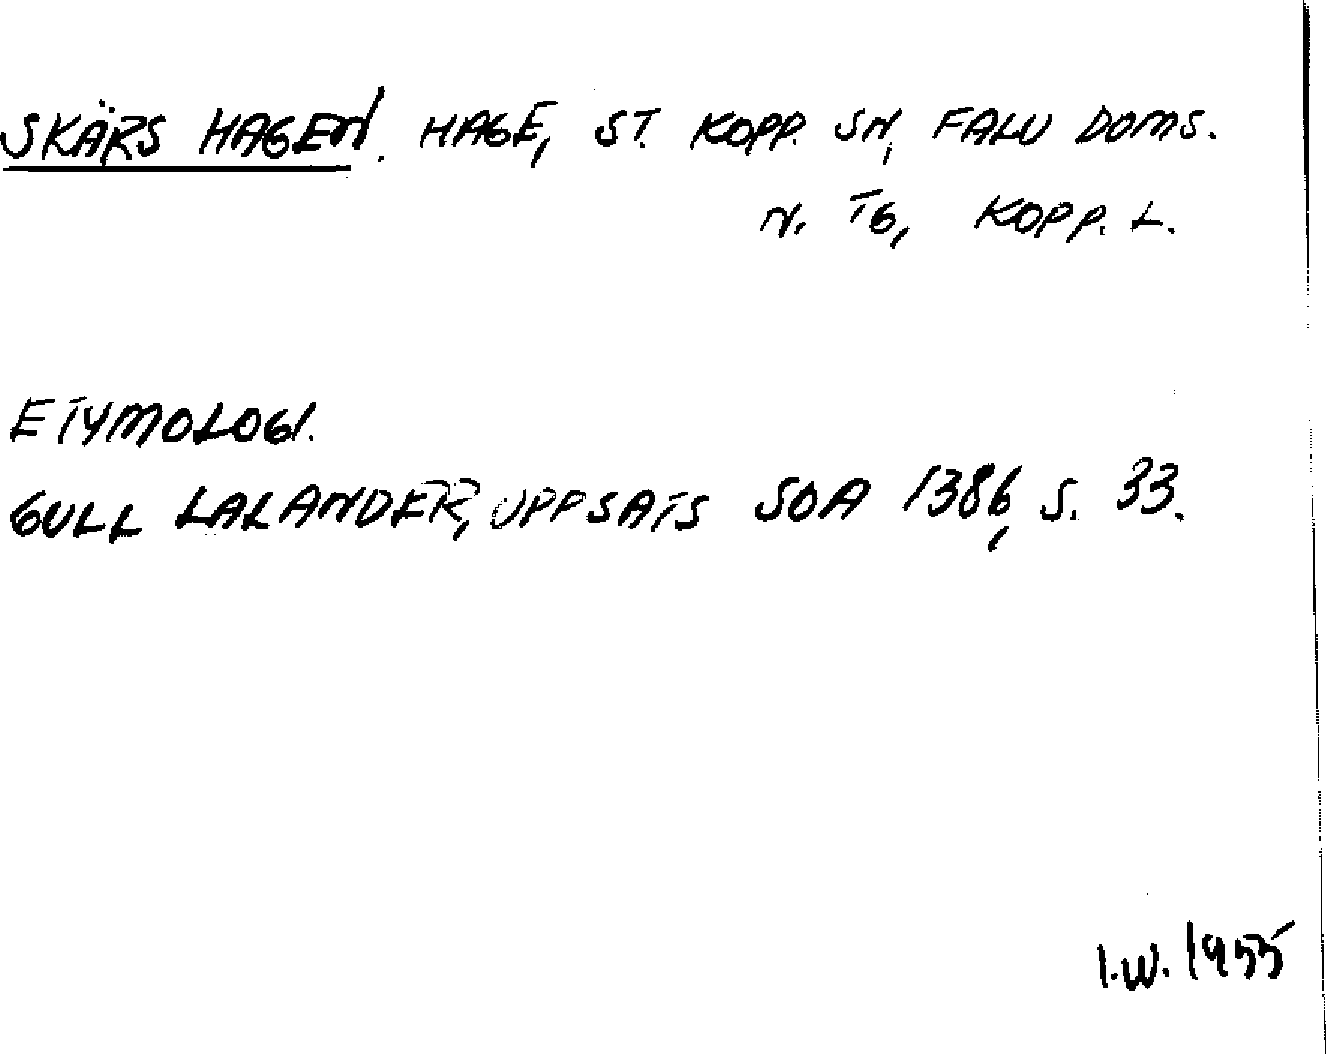 SKÄRS HAGEN. HAGE, ST. KOPP. SN, FALU DOMS.
N. TG, KOPP. L.
ETYMOLOGI.
GULL LALANDER, UPPSATS SOA 1386, S. 33.
I.W. 1955